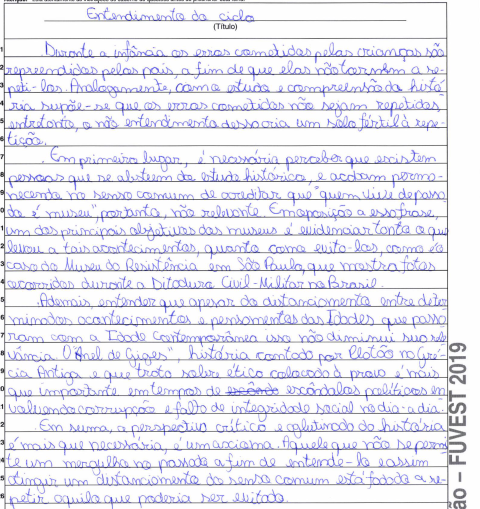 Entendimento do ciclo
(Título)
Durante a infância os erros cometidos pelas crianças são
repreendidos pelos pais, a fim de que elas não tornem a re-
peti-los. Analogamente, com o estudo e compreensão da histó
ria supõe-se que os erros cometidos não sejam repetidos,
entretanto, o não entendimento dessa cria um solo fértil à repe-
tição.
Em primeiro lugar, é necessário perceber que existem
pessoas que se abstem do estudo histórico, e acabam perma-
necendo no senso comum de acreditar que "quem vive de passa
do é museu", portanto, não relevante. Em oposição a essa frase,
um dos principais objetivos dos museus é evidenciar tanto o que
levou a tais acontecimentos, quanto como evitá-los, como é o
caso do Museu da Resistência em São Paulo, que mostra fatos
ocorridos durante a Ditadura Civil-Militar no Brasil.
Ademais, entender que apesar do distanciamento entre deter
minados acontecimentos e pensamentos das Idades que passa
ram com a Idade Contemporânea isso não diminui sua rele
vância. O "Anel de Giges", história contada por Platão na Gré
cia Antiga e que trata sobre ético colocado à prova é mais
que importante em tempos de escândalos políticos en
volvendo corrupção e falta de integridade social no dia-a-dia.
Em suma, a perspectiva crítica e aglutinada da história
é mais que necessária, é um axioma. Aquele que não se permi
te um mergulho no passado a fim de entende-lo e assim
atingir um distanciamento do senso comum está fadado a re-
petir aquilo que poderia ser evitado.
ão – FUVEST 2019